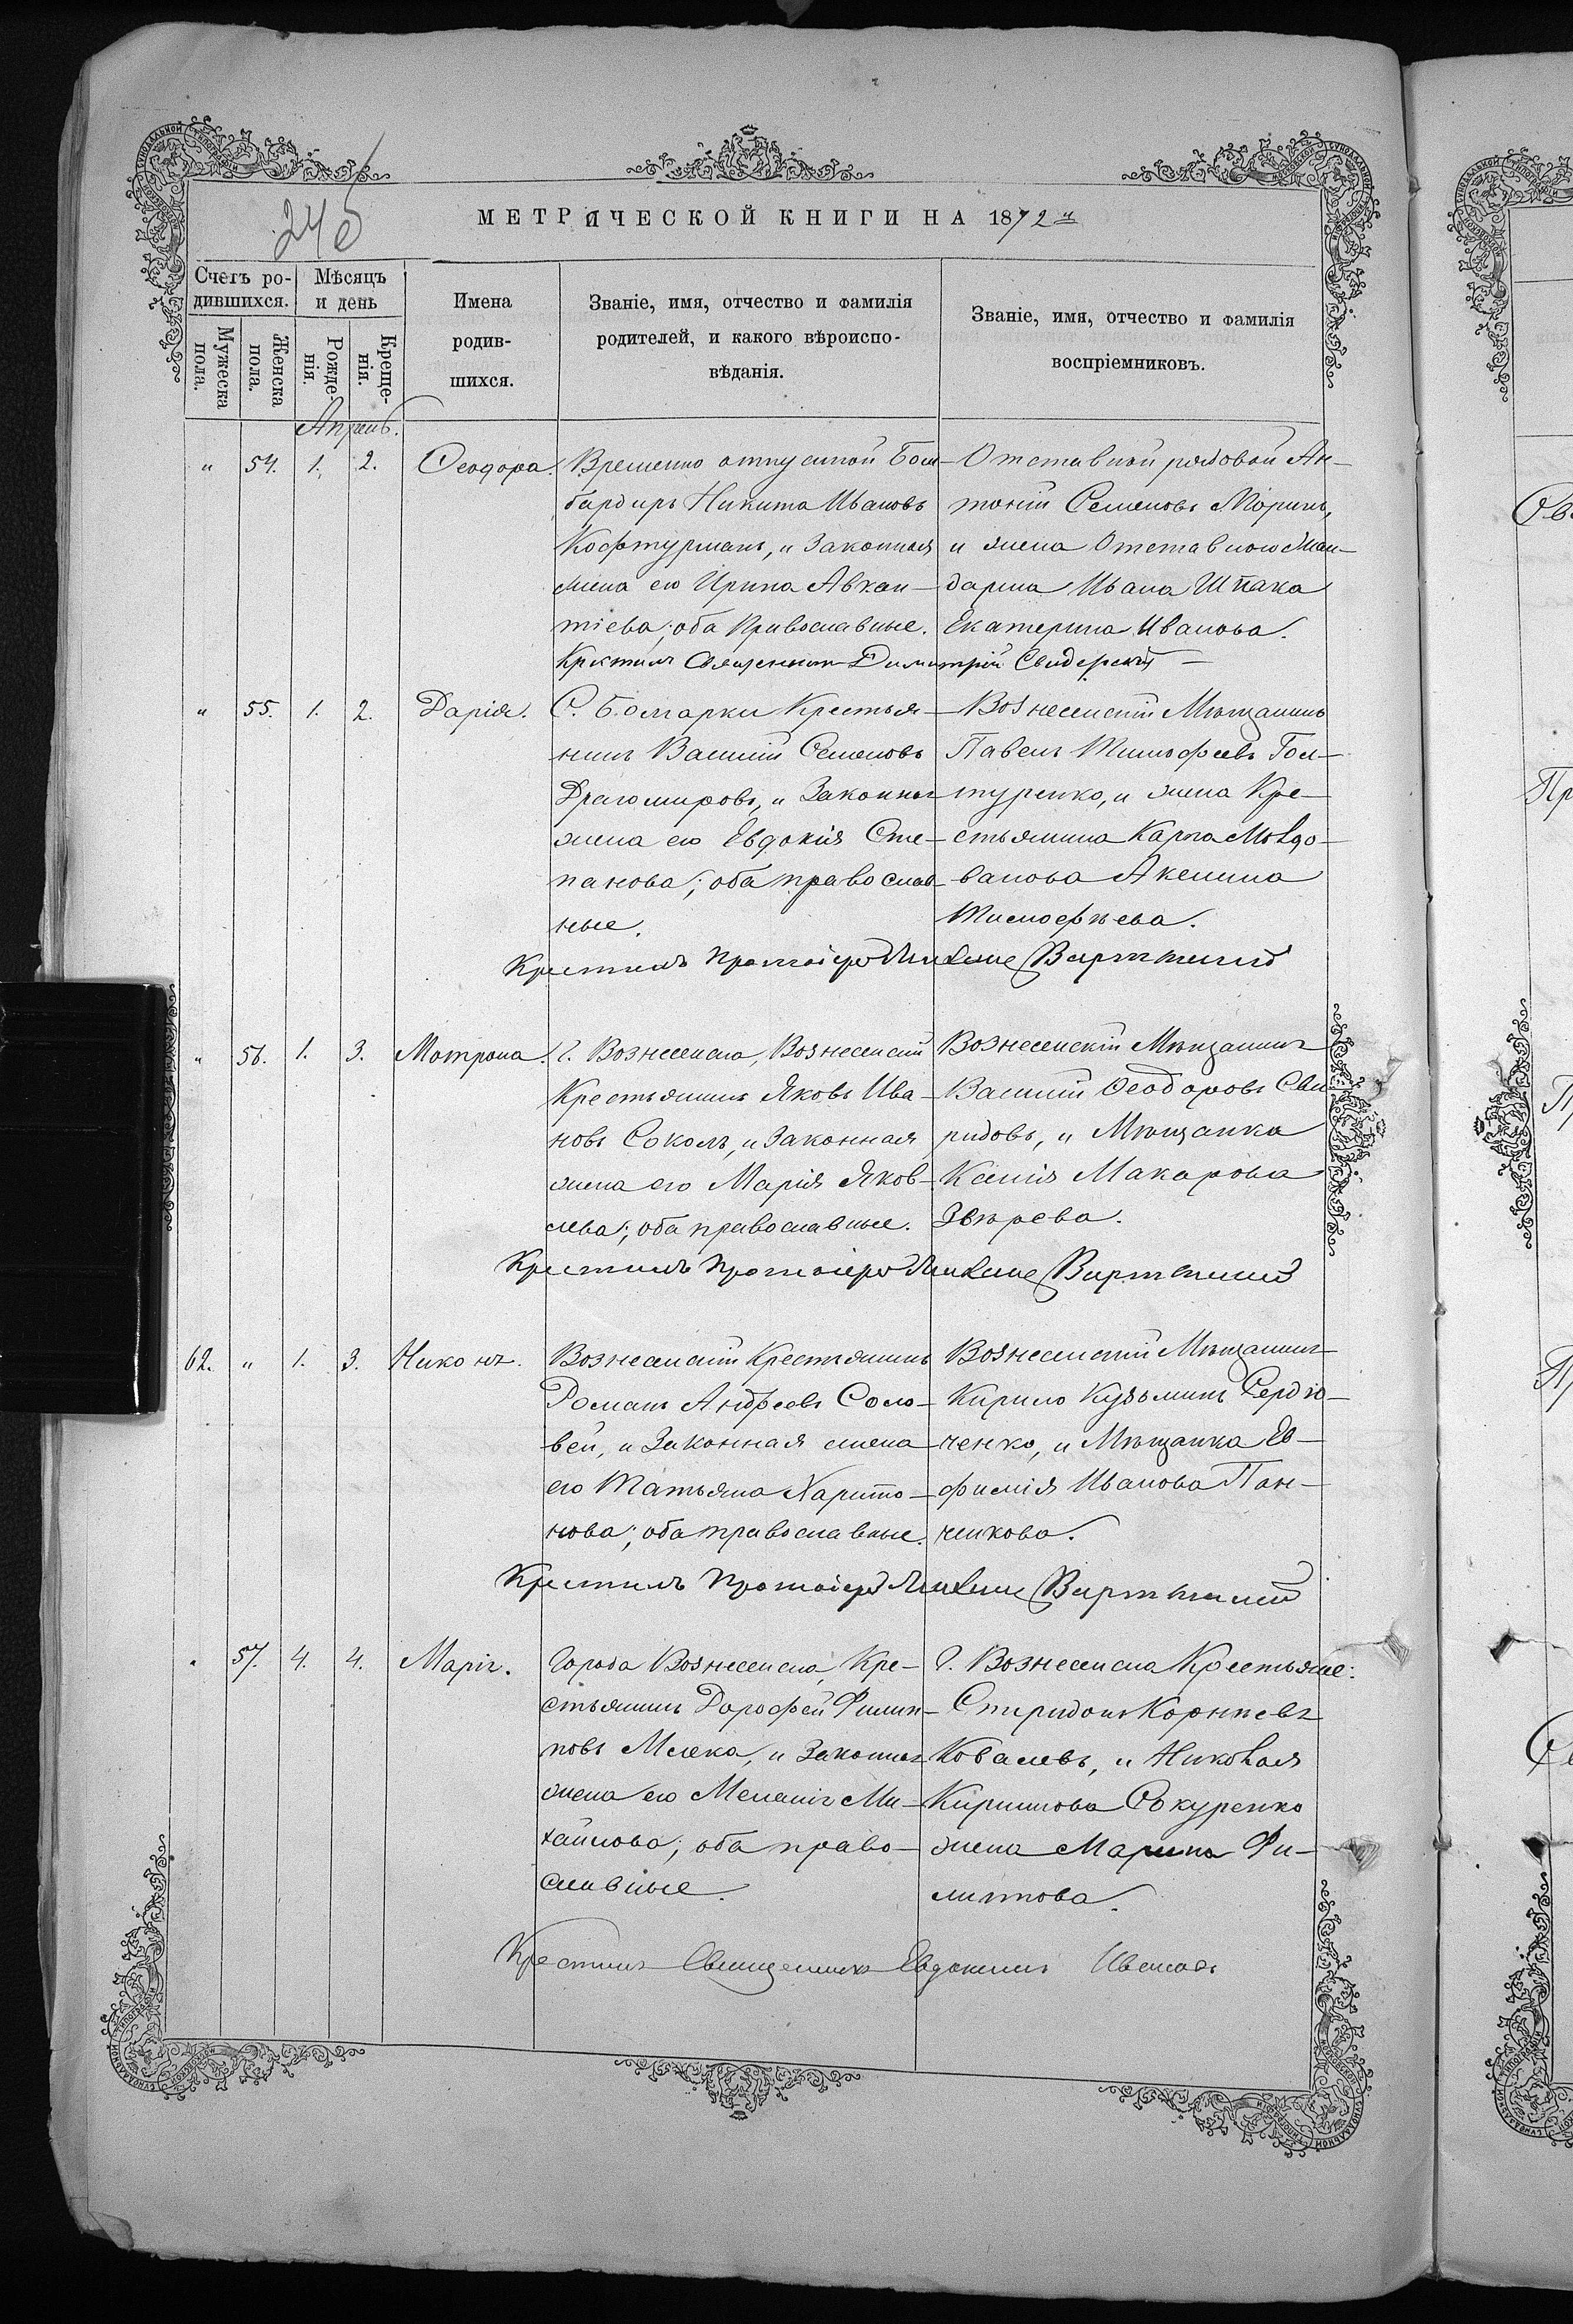 246
МЕТРИЧЕСКОЙ КНИГИ НА 1872й
Счетъ ро-
дившихся.
Мѣсяцъ
и день
Мужеска
пола.
Женска
пола.
Рожде-
нія.
Креще-
нія.
Имена
родив-
шихся.
Званіе, имя, отчество и фамилія
родителей, и какого вѣроиспо-
вѣданія.
Званіе, имя, отчество и фамилія
воспріемниковъ.
Апрель.
" 54. 1. 2. Ѳеодора.
Временно отпускной Бом-
бардиръ Никита Ивановъ
Кофтурманъ, и законная
жена его Ирина Авкен-
тіева; оба православные.
Отставной рядовой Ан-
тоній Семеновъ Моринъ,
и жена отставного Жан-
дарма Ивана Шпака
Екатерина Иванова.
Крестилъ Священникъ Димитрій Свидерскій
" 55. 1. 2. Дарія.
С. Болгарки Крестья-
нинъ Василій Семеновъ
Драгомировъ, и Законная
жена его Евдокія Сте-
панова; оба православ-
ные.
Вознесенскій Мѣщанинъ
Павелъ Тимофеевъ Гон-
туренко, и жена Кре-
стьянина Карпа Молдо-
ванова Акелина
Тимофѣева.
Крестилъ Протоіерей
" 56. 1. 3. Мотрона.
Г. Вознесенска, Вознесенскій
Крестьянинъ Яковъ Ива-
новъ Соколъ, и Законная
жена его Марія Яков-
лева; оба православные.
Вознесенскій Мѣщанинъ
Василій Ѳеодоровъ Сви-
ридовъ, и Мѣщанка
Ксенія Макарова
Звѣрева.
Крестилъ Протоіерей
62. " 1. 3. Никонъ.
Вознесенскій Крестьянинъ
Романъ Андреевъ Соло-
вей, и Законная жена
его Татьяна Харито-
нова; оба православные.
Вознесенскій Мѣщанинъ
Кирило Кузьминъ Сердю-
ченко, и Мѣщанка Ев-
фимія Иванова Пан-
ченкова.
Крестилъ Протоіерей
" 57. 4. 4. Марія.
Города Вознесенска, Кре-
стьянинъ Дорофей Филип-
повъ Млека, и Законная
жена его Меланія Ми-
хайлова; оба право-
славные.
Г. Вознесенска Крестьяне:
Спиридонъ Корнѣевъ
Ковалевъ, и Николая
Кирилова Сокуренко
жена Марина Фи-
липпова.
Крестилъ Священникъ Евдокимъ Ивановъ